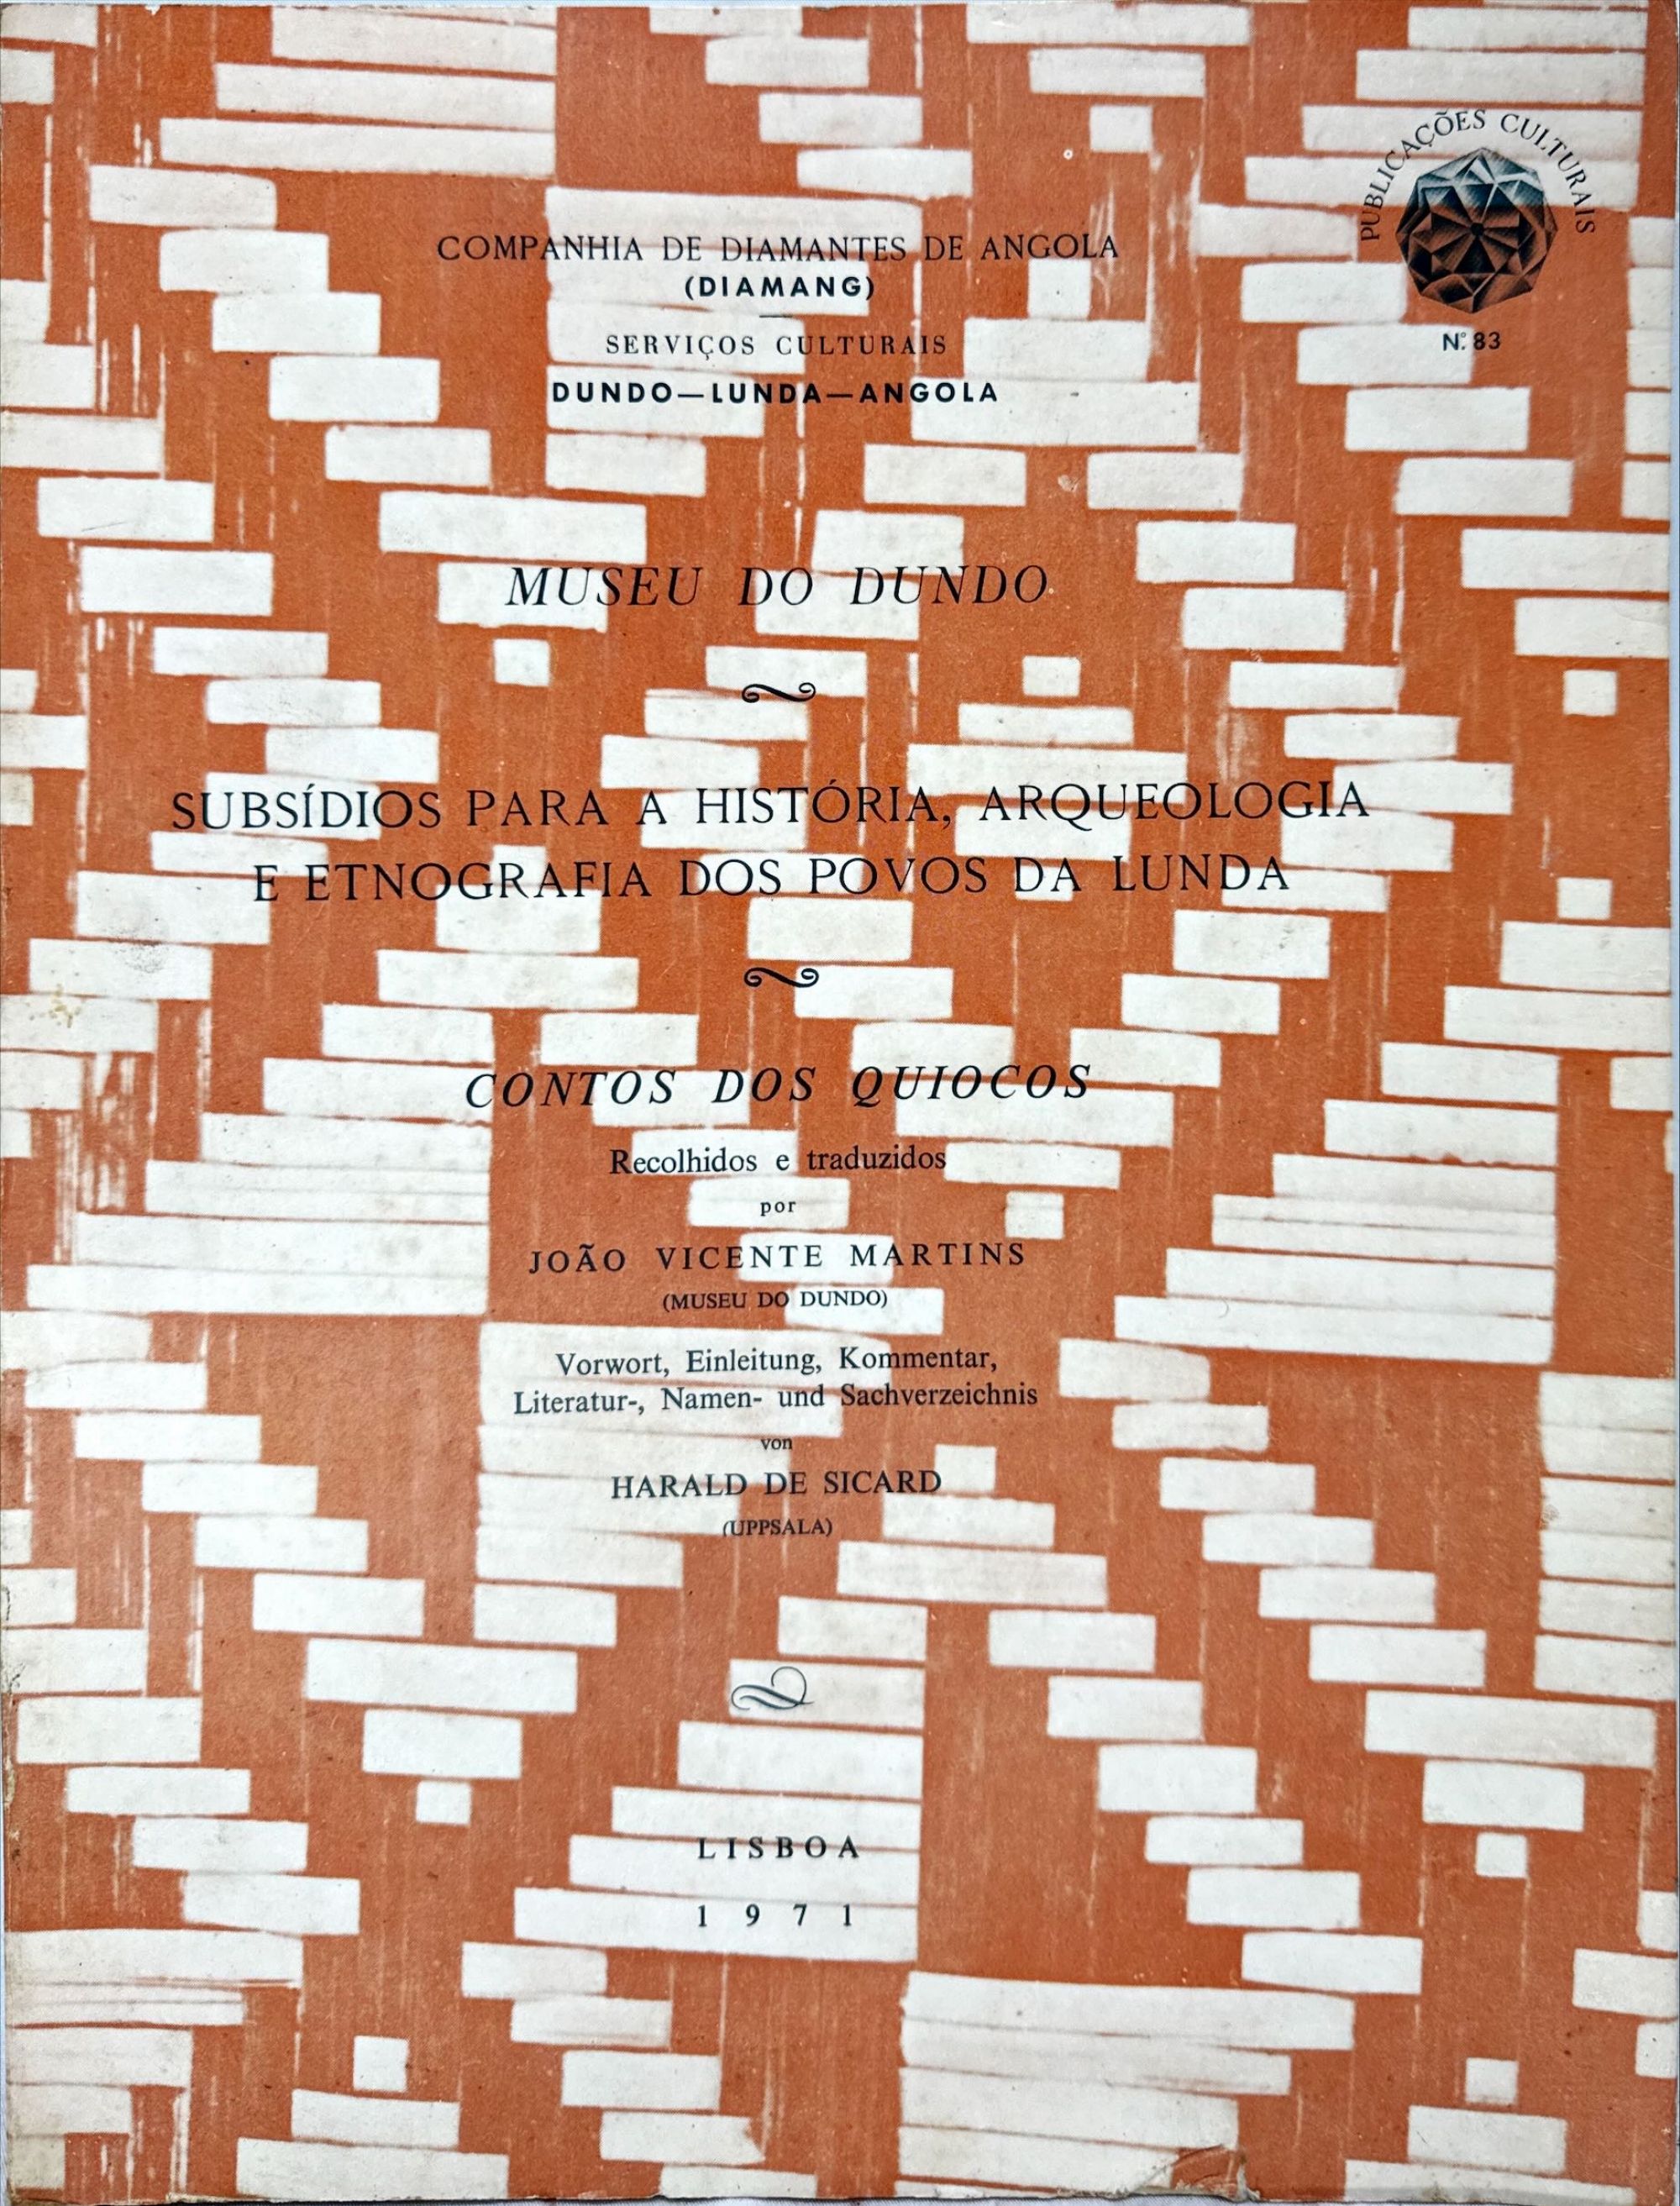 PUBLICAÇÕES CULTURAIS
N.º 83
COMPANHIA DE DIAMANTES DE ANGOLA
(DIAMANG)
SERVIÇOS CULTURAIS
DUNDO—LUNDA—ANGOLA
MUSEU DO DUNDO
SUBSÍDIOS PARA A HISTÓRIA, ARQUEOLOGIA
E ETNOGRAFIA DOS POVOS DA LUNDA
CONTOS DOS QUIOCOS
Recolhidos e traduzidos
por
JOÃO VICENTE MARTINS
(MUSEU DO DUNDO)
Vorwort, Einleitung, Kommentar,
Literatur-, Namen- und Sachverzeichnis
von
HARALD DE SICARD
(UPPSALA)
LISBOA
1971